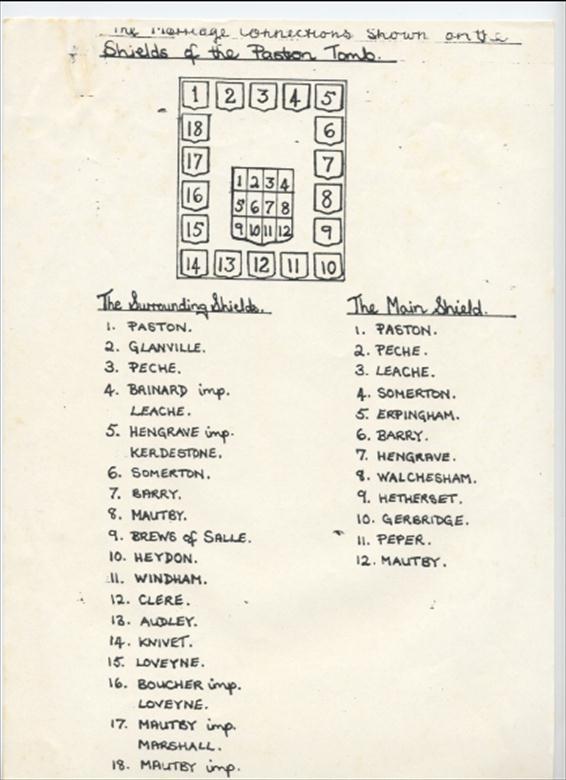 The Marriage Connections Shown on the
Shields of the Paston Tomb.
1 2 3 4 5
18 6
17 7
1 2 3 4
16 8
5 6 7 8
15 9
9 10 11 12
14 13 12 11 10
The Surrounding Shields.
1. PASTON.
2. GLANVILLE.
3. PECHE.
4. BAINARD imp.
LEACHE.
5. HENGRAVE imp.
KERDESTONE.
6. SOMERTON.
7. BARRY.
8. MAUTBY.
9. BREWS of SALLE.
10. HEYDON.
11. WINDHAM.
12. CLERE.
13. AUDLEY.
14. KNIVET.
15. LOVEYNE.
16. BOUCHER imp.
LOVEYNE.
17. MAUTBY imp.
MARSHALL.
18. MAUTBY imp.
The Main Shield.
1. PASTON.
2. PECHE.
3. LEACHE.
4. SOMERTON.
5. ERPINGHAM.
6. BARRY.
7. HENGRAVE.
8. WALCHESHAM.
9. HETHERSET.
10. GERBRIDGE.
11. PEPER.
12. MAUTBY.